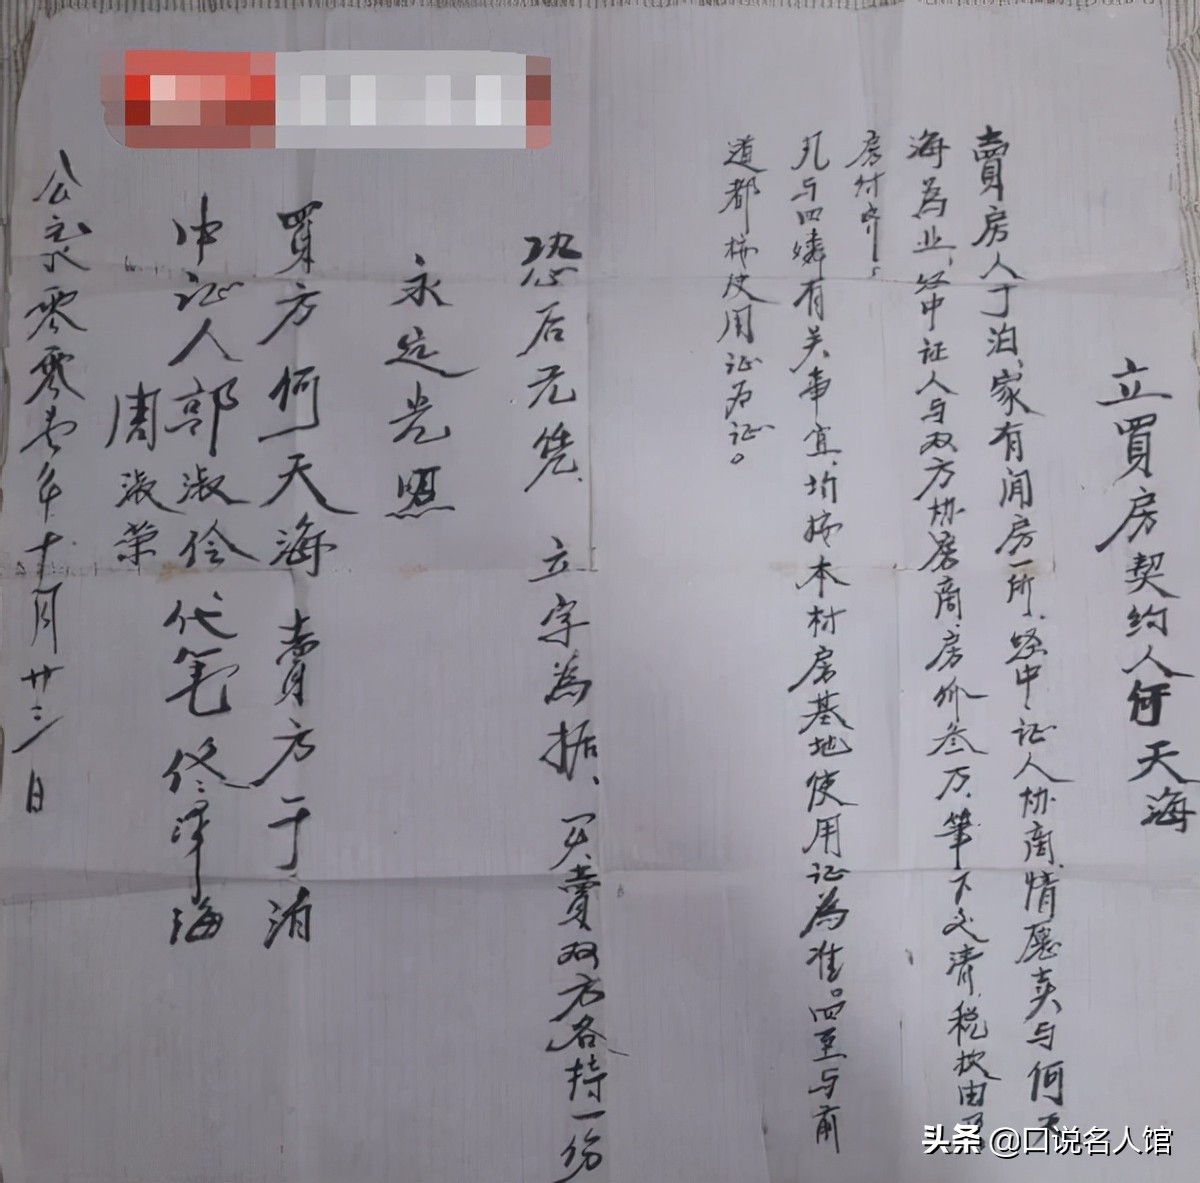 立買房契约人何天海
賣房人于泊、家有闲房一所、经中证人协商、情愿卖与何天
海為业、经中证人与双方协居商、房价叁万、筆下交清、税款由买
房付齐。
凡与四鄰有关事宜、均按本村房基地使用证為准。四至与前
道都按使用证为证。
恐后无凭、立字為据、买賣双方各持一份
永远光照
買方何天海 賣方于泊
中证人郭淑伶 代笔佟泽海
周淑荣
公元零零壹年十月廿三日
头条 @口说名人馆